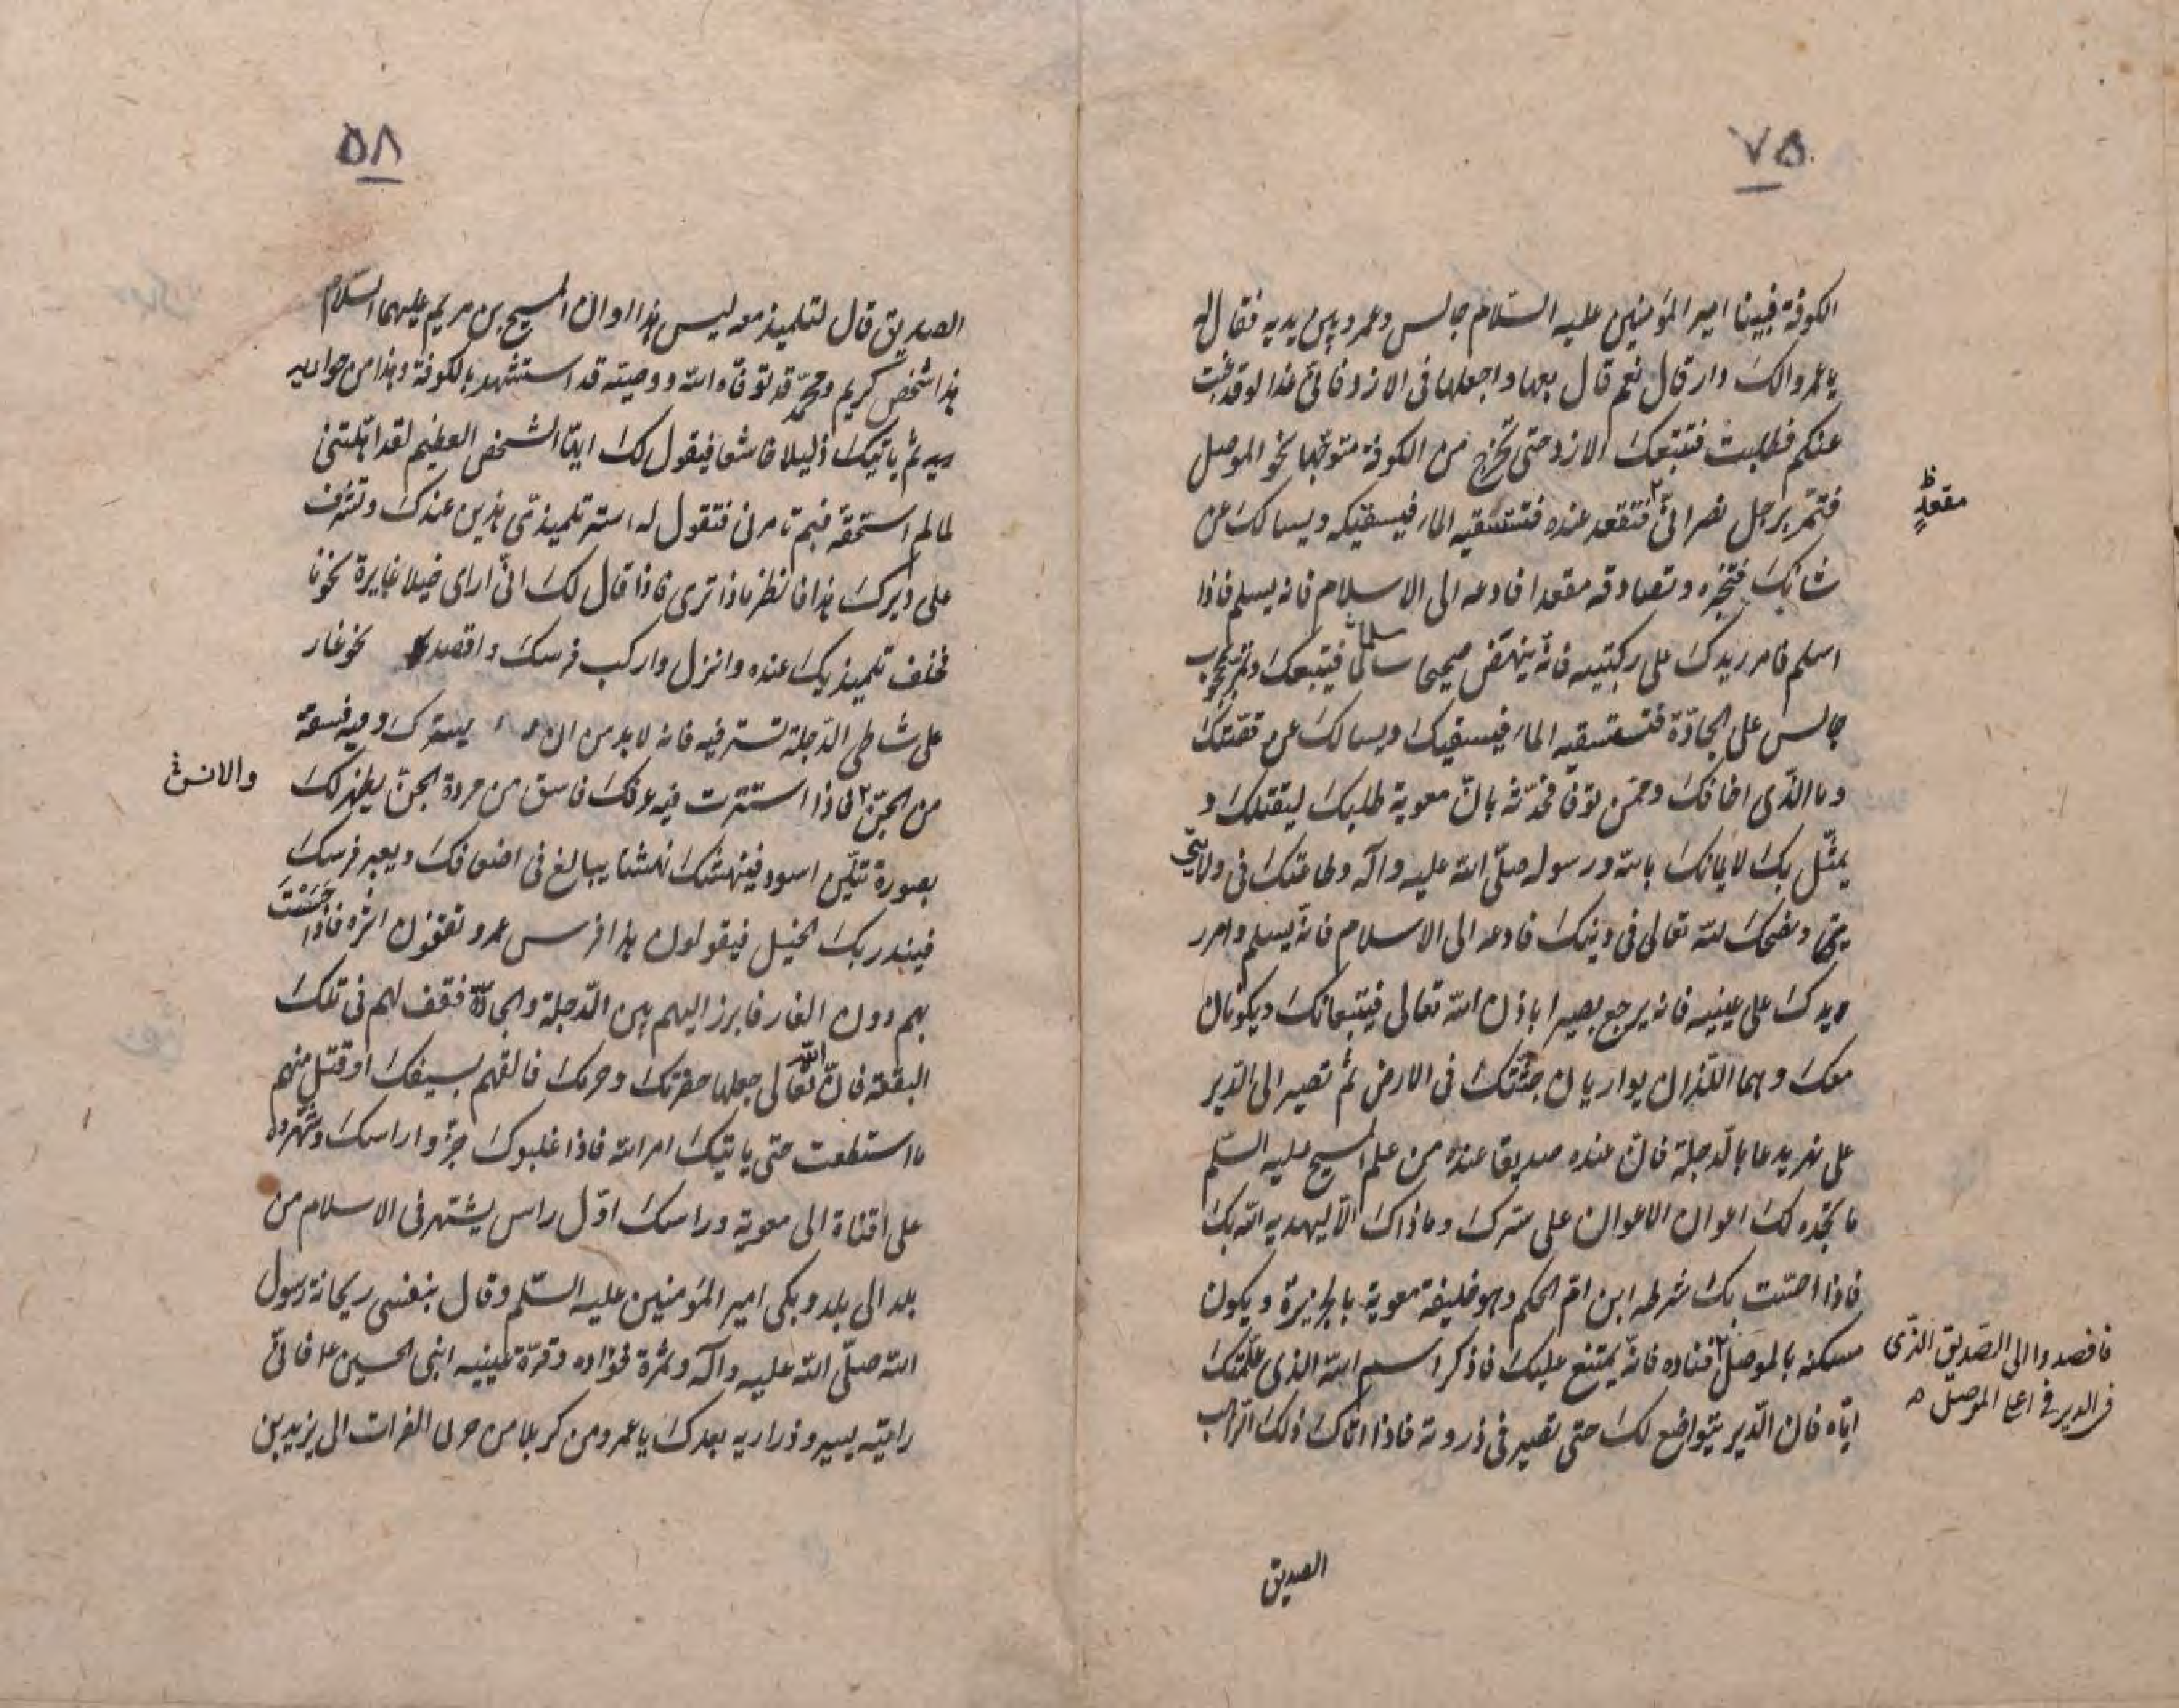 ٧٥
الكوفة فبينا امير المؤمنين عليه السّلام جالس وعمرو بين يديه فقال له
يا عمرو الك دار قال نعم قال بعها واجعلها فى الازد فانى غدا لو قد غبت
عنكم فطلبت فتتبعك الازد حتى تخرج من الكوفة متوجّها نحو الموصل
فتمرّ برجل نصرانىّ فتقعد عنده فتستسقيه الماء فيسقيكه ويسالك عن
مقعدٍ ظ
شانك فتخبره وتصادفه مقعدا فادعه الى الاسلام فانه يسلم فاذا
اسلم فامرر يدك على ركبتيه فانّه ينهض صحيحا سالما فيتبعك وتمرّ
جالس على الجادّة فتستسقيه الماء فيسقيك ويسالك عن قصّتك
وما الذّى اخافك وممّن توقّا فحدّثه بانّ معوية طلبك ليقتلك و
يمثّل بك لايمانك بالله ورسوله صلّى الله عليه وآله وطاعتك فى ولايتى
ونصحك لله تعالى فى دينك فادعه الى الاسلام فانّه يسلم وامرر
يدك على عينيه فانه يرجع بصيرا باذن الله تعالى فيتبعانك ويكونان
معك وهما اللّذان يواريان جثّتك فى الارض ثمّ تصير الى الدّير
على نهر يدعا بالدّجلة فانّ عنده صديقا عنده من علم المسيح عليه السّلم
ما تجده لك اعوان الاعوان على سترك وما ذاك الّا ليهديه الله بك
فاذا احسّت بك شرطه ابن امّ الحكم وهو خليفة معوية بالجزيرة ويكون
مسكنه بالموصل فناده فانّه يمتنع عليك فاذكر اسم الله الذى علّمتك
فاقصد والى الصّديق الذّى
فى الدير فى اعلا الموصل
ايّاه فان الدّير يتواضع لك حتى تصير فى ذروته فاذا اتاك ذلك الرّاهب
الصديق
٥٨
الصديق قال لتلميذ معه ليس هذا اوان المسيح بن مريم عليهما السّلام
هذا شخص كريم ومحمّد قد توفّاه الله ووصيّه قد استشهد بالكوفة وهذا من حواريه
ثم ياتيك ذليلا خاشعا فيقول لك ايّها الشخص العظيم لقد اهّلتنى
لما لم استحقّه فبم تامرنى فتقول له استر تلميذىّ هذين عندك وتشرف
على ديرك هذا فانظر ماذا ترى فاذا قال لك انّى ارى خيلا غايرة نحونا
فخلف تلميذيك عنده وانزل واركب فرسك واقصد نحو غار
على شاطى الدّجلة تستتر فيه فانه لا بد من ان يسترك وفيه فسقة
من الجنّ فاذا استترت فيه عرفك فاسق من مردة الجنّ يظهر لك
والانس
بصورة تنّين اسود فينهشك نهشا يبالغ فى اضعافك ويعبر فرسك
فيبتدر بك الخيل فيقولون هذا فرس عمرو تقفون اثره فاذا
بهم دون الغار فابرز اليهم بين الدّجلة والجادّة فقف لهم فى تلك
البقعة فانّ الله تعالى جعلها حفرتك وحرمك فالقهم بسيفك اوقتل منهم
ما استطعت حتى ياتيك امر الله فاذا غلبوك جزّوا راسك وشهّروه
على قناة الى معوية وراسك اوّل راس يشتهر فى الاسلام من
بلد الى بلد وبكى امير المؤمنين عليه السّلم وقال بنفسى ريحانة رسول
الله صلّى الله عليه وآله وثمرة فؤاده وقرّة عينيه ابنى الحسين ع فانّى
رايته يسير وذراريه بعدك يا عمرو من كربلا من حول الفرات الى يزيد بن